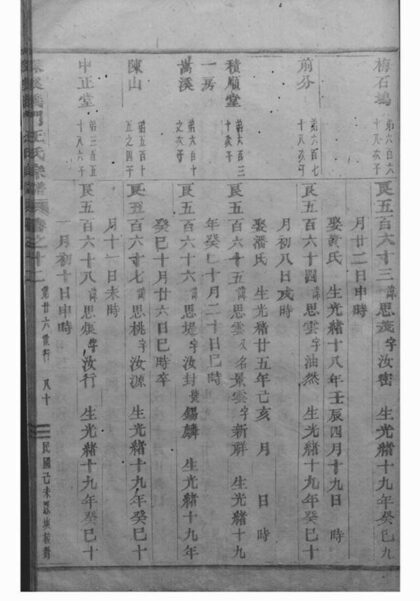 梅石塢 第六百六十八次子 良五百六十三 諱思茂字汝密 生光緒十九年癸巳九
月廿二日申時
娶黃氏 生光緒十八年壬辰四月十九日 時
前分 第六百七十八次子 良五百六十四 諱思雲字油然 生光緒十九年癸巳十
月初八日戌時
娶潘氏 生光緒廿五年己亥 月 日 時
積順堂 良五百六十五 諱思雲又名景雲字新祥 生光緒十九
年癸巳十月二十日巳時
一房
嵩溪 第五百十之次子 良五百六十六 諱思堤字汝封號錫麟 生光緒十九年
癸巳十月廿六日巳時卒
陳山 第五百十五之四子 良五百六十七 諱思桃字汝源 生光緒十九年癸巳十
月十一日未時
中正堂 第三百五十八六子 良五百六十八 諱思 字汝行 生光緒十九年癸巳十
一月初十日申時
門王氏宗譜 卷之十二 第廿六 世行 八十 民國己未